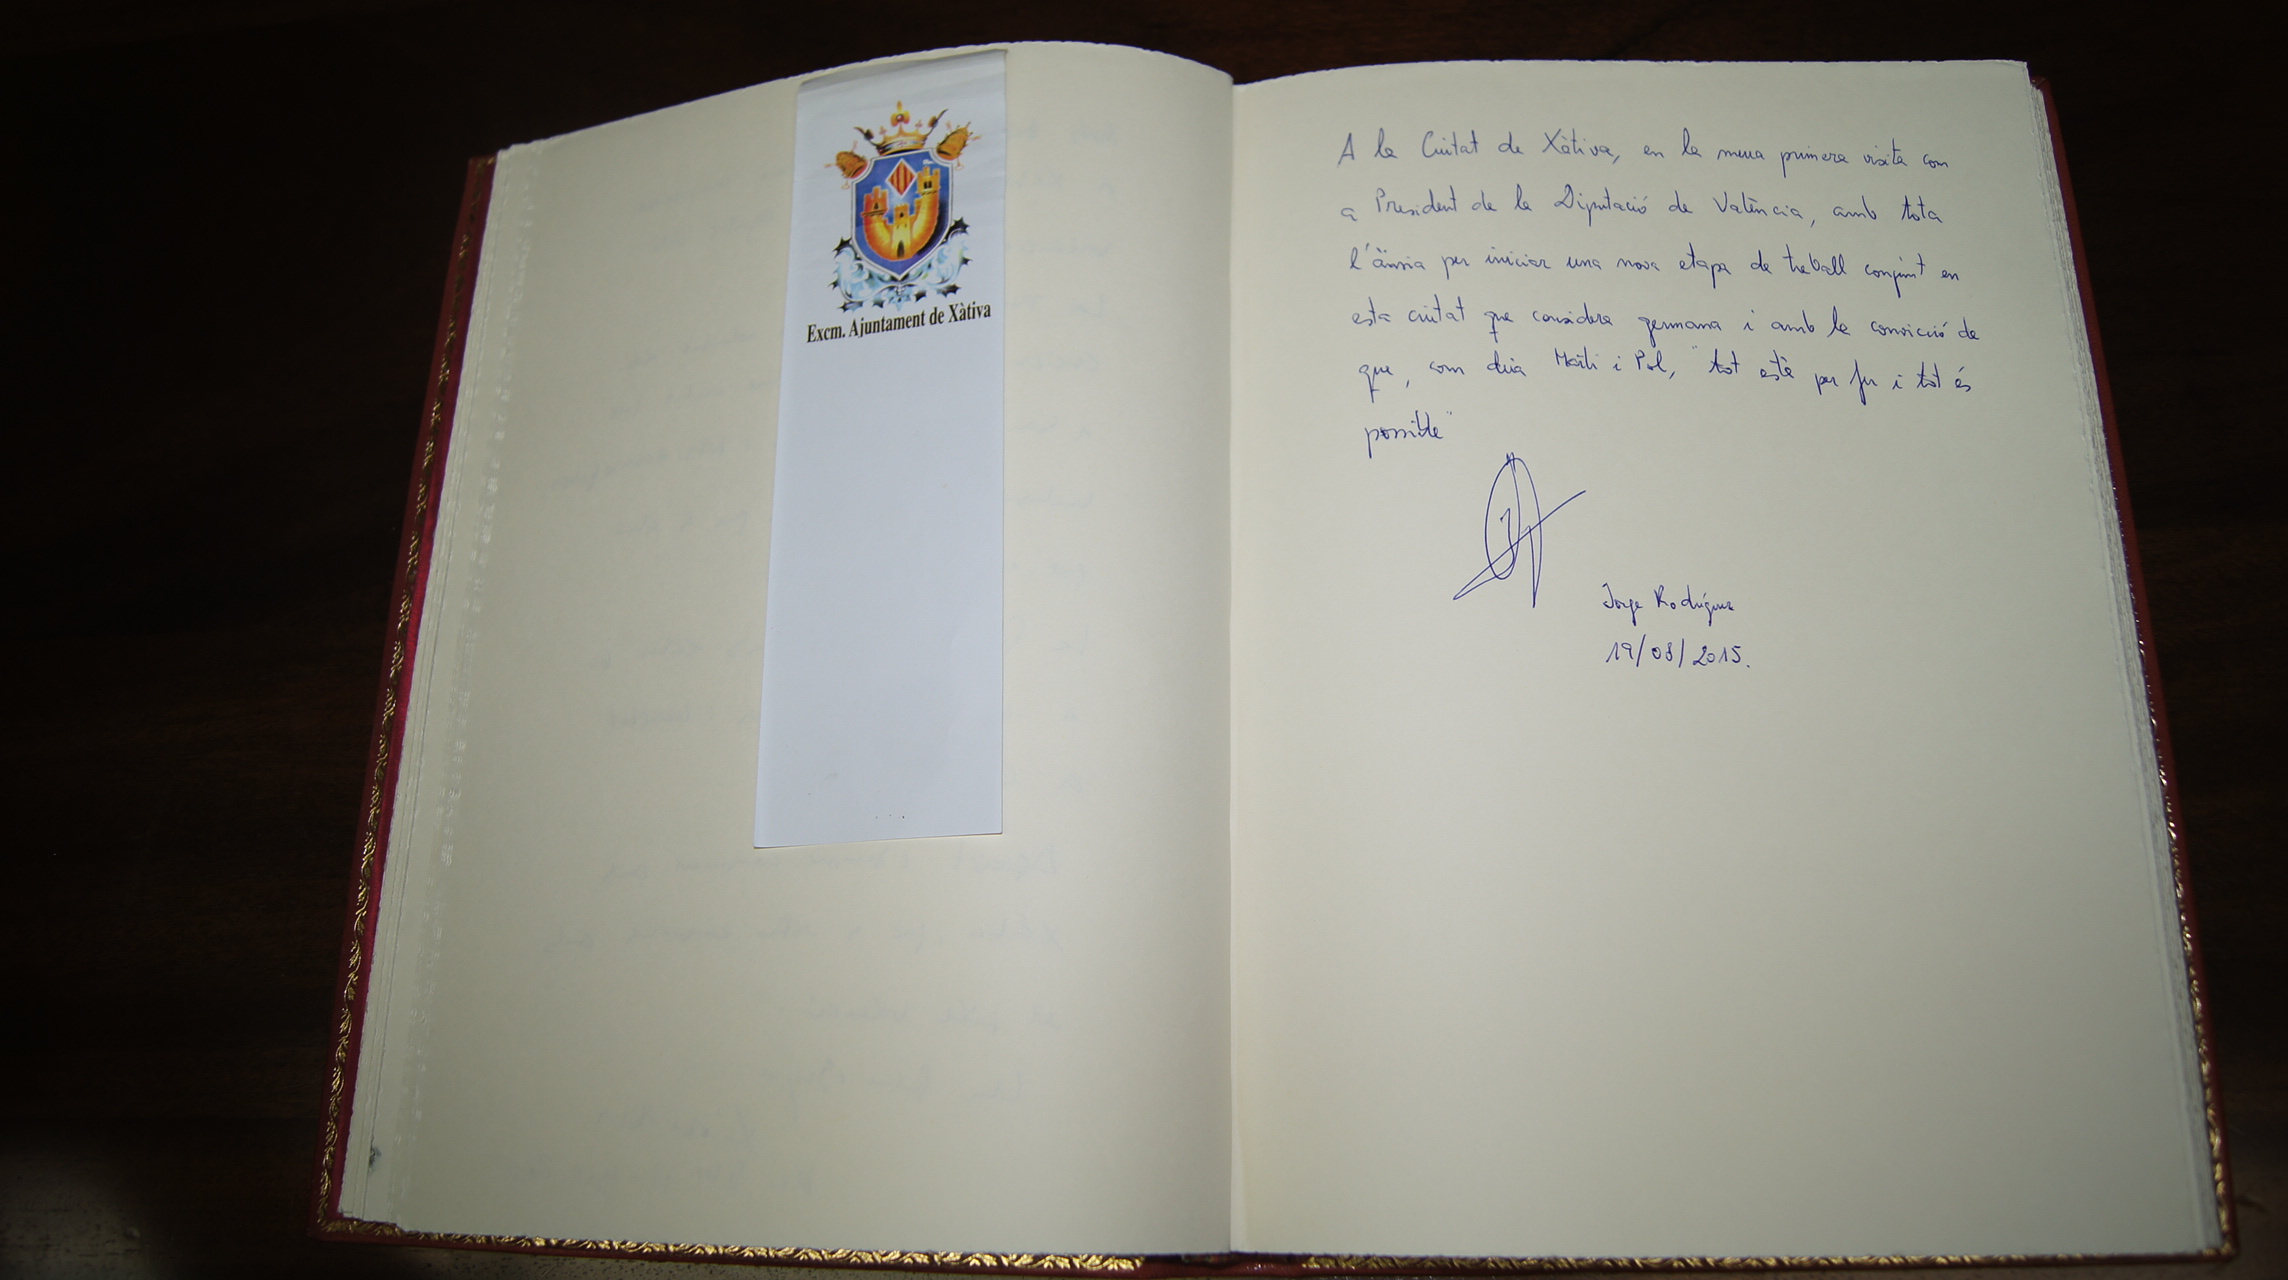 Excm. Ajuntament de Xàtiva
A la Ciutat de Xàtiva, en la meua primera visita com
a President de la Diputació de València, amb tota
l'ànsia per iniciar una nova etapa de treball conjunt en
esta ciutat que considera germana i amb la convicció de
que, com deia Martí i Pol, "tot està per fer i tot és
possible"
Jorge Rodríguez
19/08/2015.